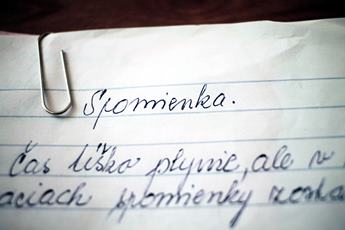 Spomienka.
Čas tíško plynie, ale v
aciach spomienky zosta